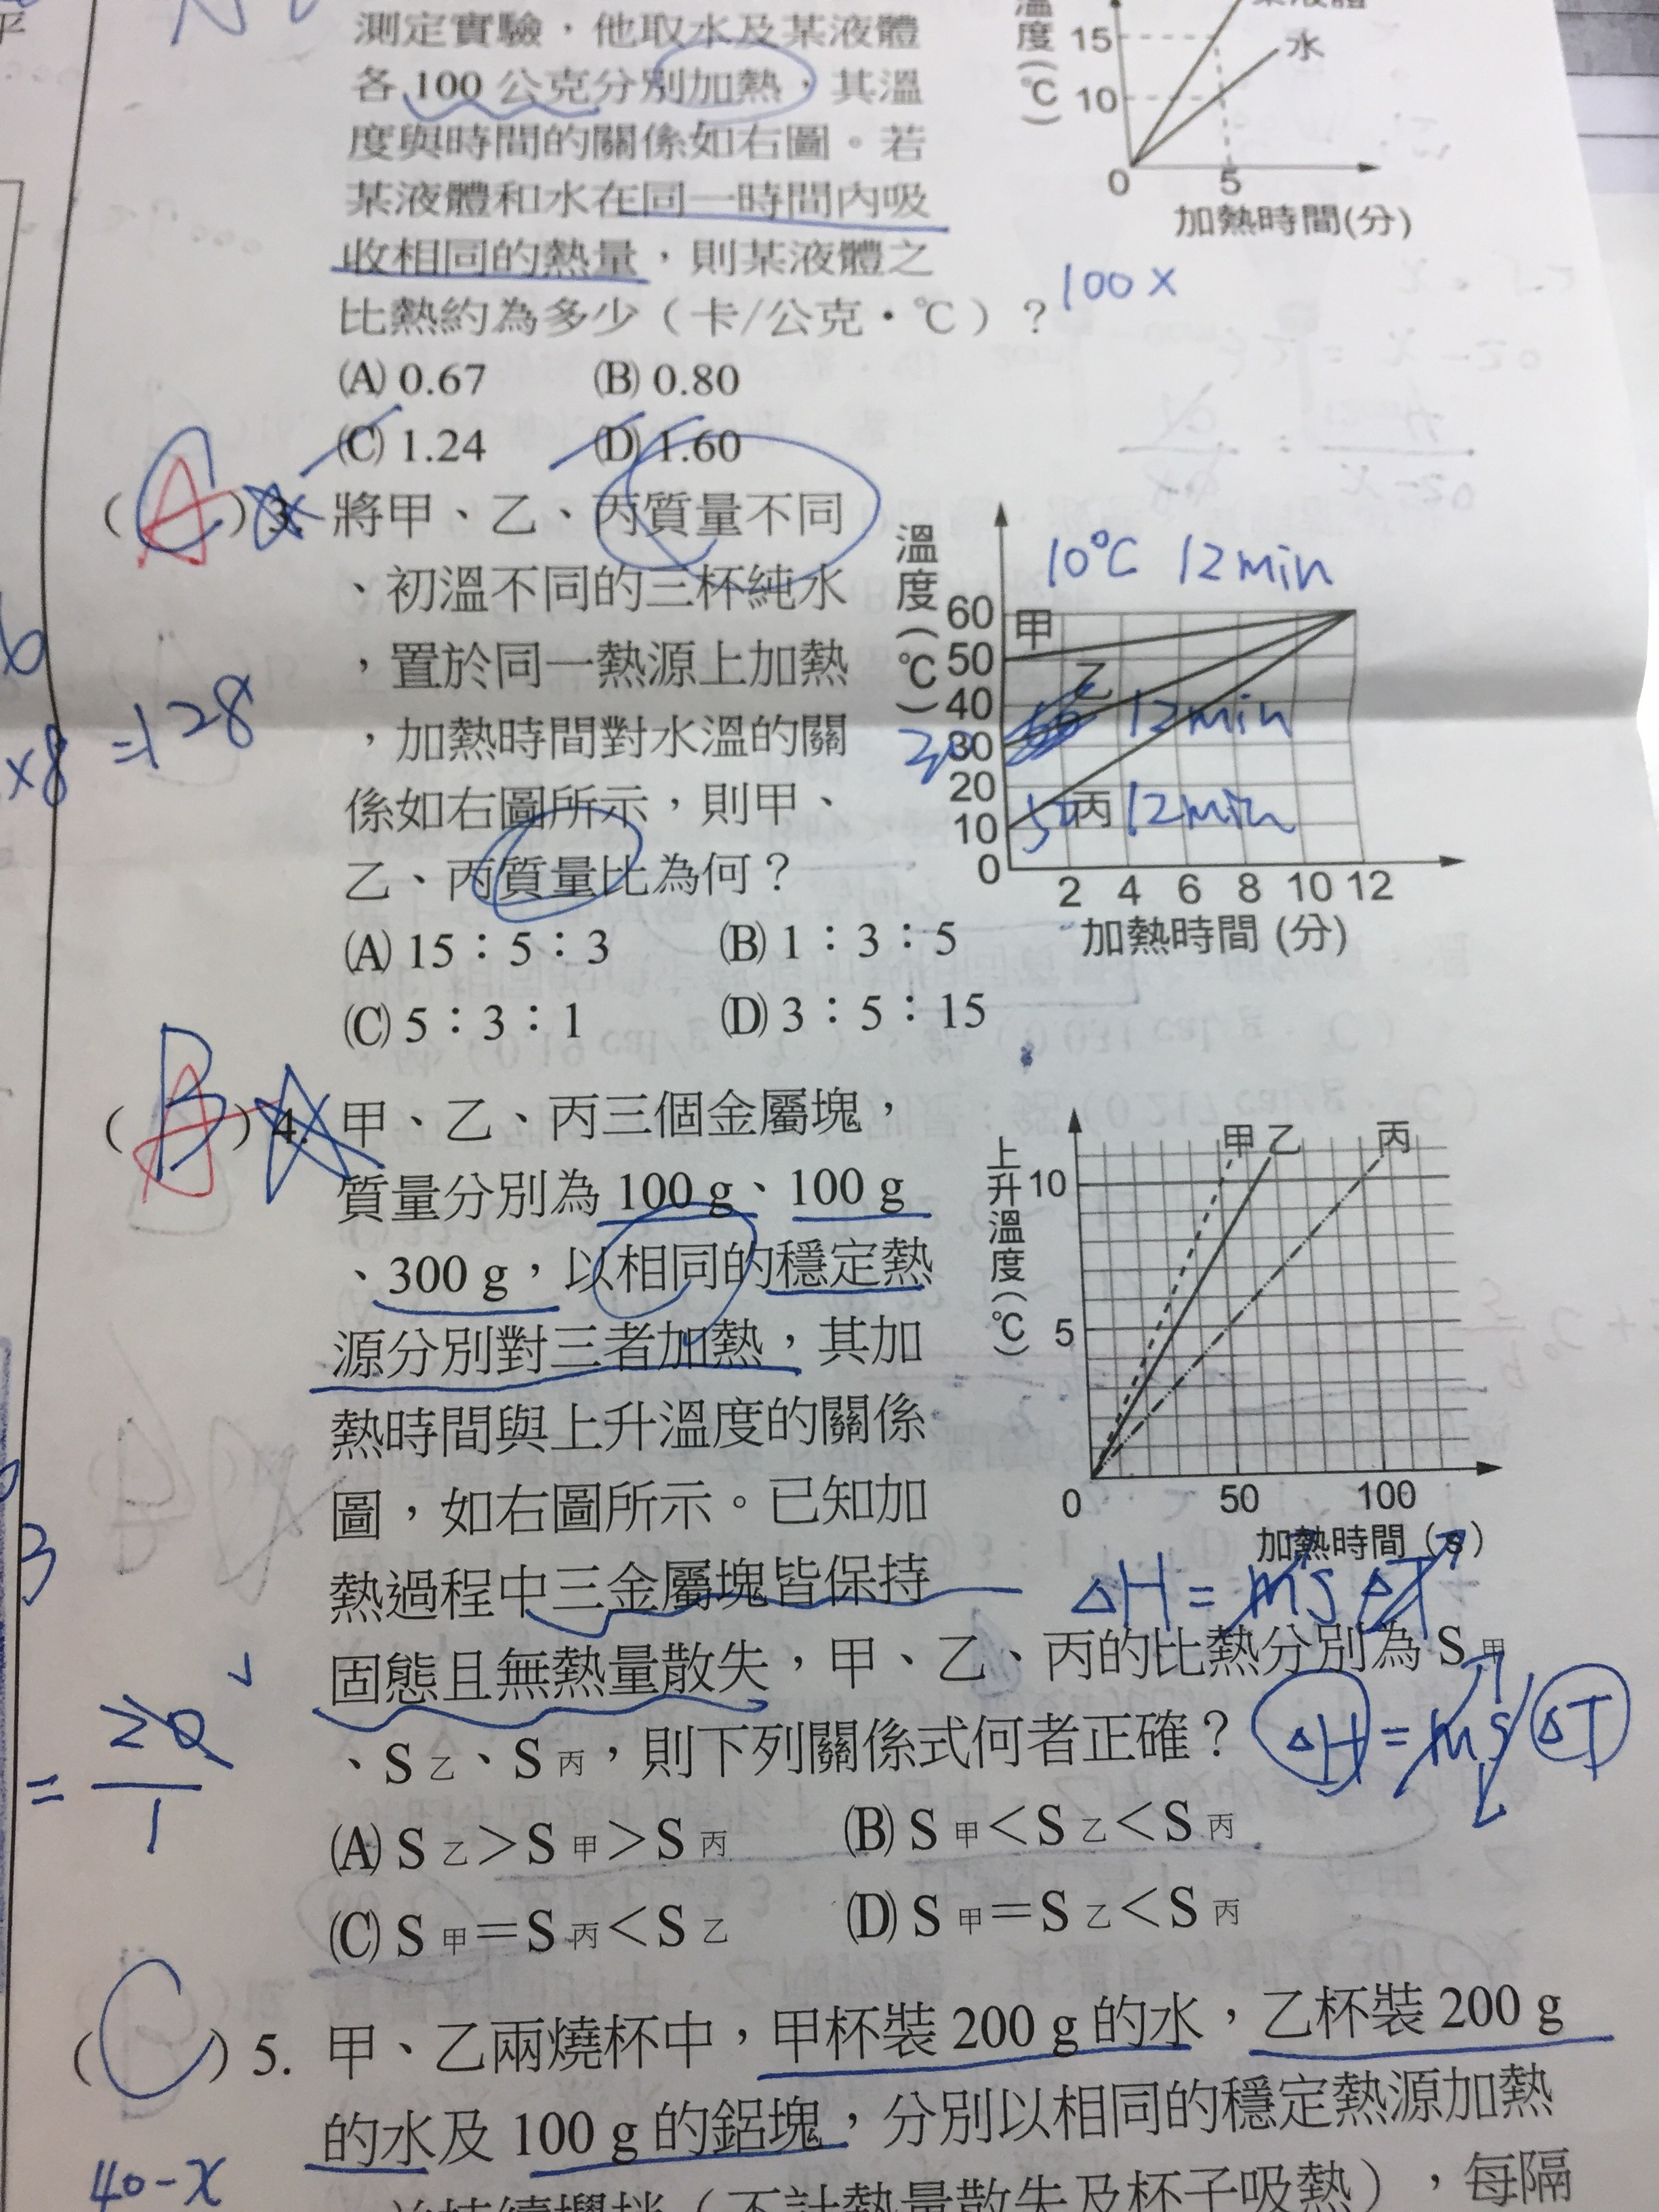 測定實驗，他取水及某液體
各 100 公克分別加熱，其溫
度與時間的關係如右圖。若
某液體和水在同一時間內吸
收相同的熱量，則某液體之
比熱約為多少（卡/公克・℃）？
(A) 0.67 (B) 0.80
(C) 1.24 (D) 1.60
溫度(℃)
15
10
水
0 5
加熱時間(分)
100 x
( A ) 3. 將甲、乙、丙質量不同
、初溫不同的三杯純水
，置於同一熱源上加熱
，加熱時間對水溫的關
係如右圖所示，則甲、
乙、丙質量比為何？
(A) 15：5：3 (B) 1：3：5
(C) 5：3：1 (D) 3：5：15
溫度(℃)
10℃ 12min
60
50
40
30
20
10
0
甲
乙
丙
30
12min
50 12min
2 4 6 8 10 12
加熱時間 (分)
×8 =128
( A ) 4. 甲、乙、丙三個金屬塊，
質量分別為 100 g、100 g
、300 g，以相同的穩定熱
源分別對三者加熱，其加
熱時間與上升溫度的關係
圖，如右圖所示。已知加
熱過程中三金屬塊皆保持
固態且無熱量散失，甲、乙、丙的比熱分別為 S甲
、S乙、S丙，則下列關係式何者正確？
(A) S乙＞S甲＞S丙 (B) S甲＜S乙＜S丙
(C) S甲＝S丙＜S乙 (D) S甲＝S乙＜S丙
上升溫度(℃)
甲 乙 丙
10
5
0 50 100
加熱時間 (s)
ΔH = msΔT
ΔH = msΔT
3
( C ) 5. 甲、乙兩燒杯中，甲杯裝 200 g 的水，乙杯裝 200 g
的水及 100 g 的鋁塊，分別以相同的穩定熱源加熱
40-x
（不計熱量散失及杯子吸熱），每隔